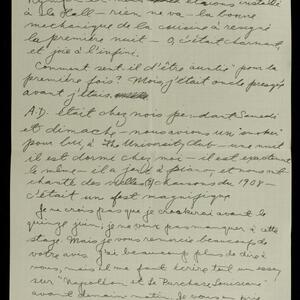 étions installés
à le Hall - rien ne va - la bonne
mechanique de la cuisine a resigné
la première nuit - O, c'était charmant
et joie à l'infini.
Comment sent il d'être "auntie" pour la
première fois? Mais j'était oncle presque
avant j'étais
A.D. était chez nous pendant Samedi
et dimache - nous avions un "smoker"
pour lui, à The University Club - une nuit
il est dormé chez moi - il est
le même - il a joué à piano, et nous ont
chanté des vielles chansons du 1908 -
c'était un fest magnifique
Je ne crois pas que je
quinze juin, je ne veux pas manquer à cette
stage Mais je vous remercie beaucoup de
votre avis. J'ai beaucoup plus de dire à
vous, mais il me faut écrire tout un essay
sur "Napoléon et Le Purchase Louisiane"
avant demain matin. Je vous